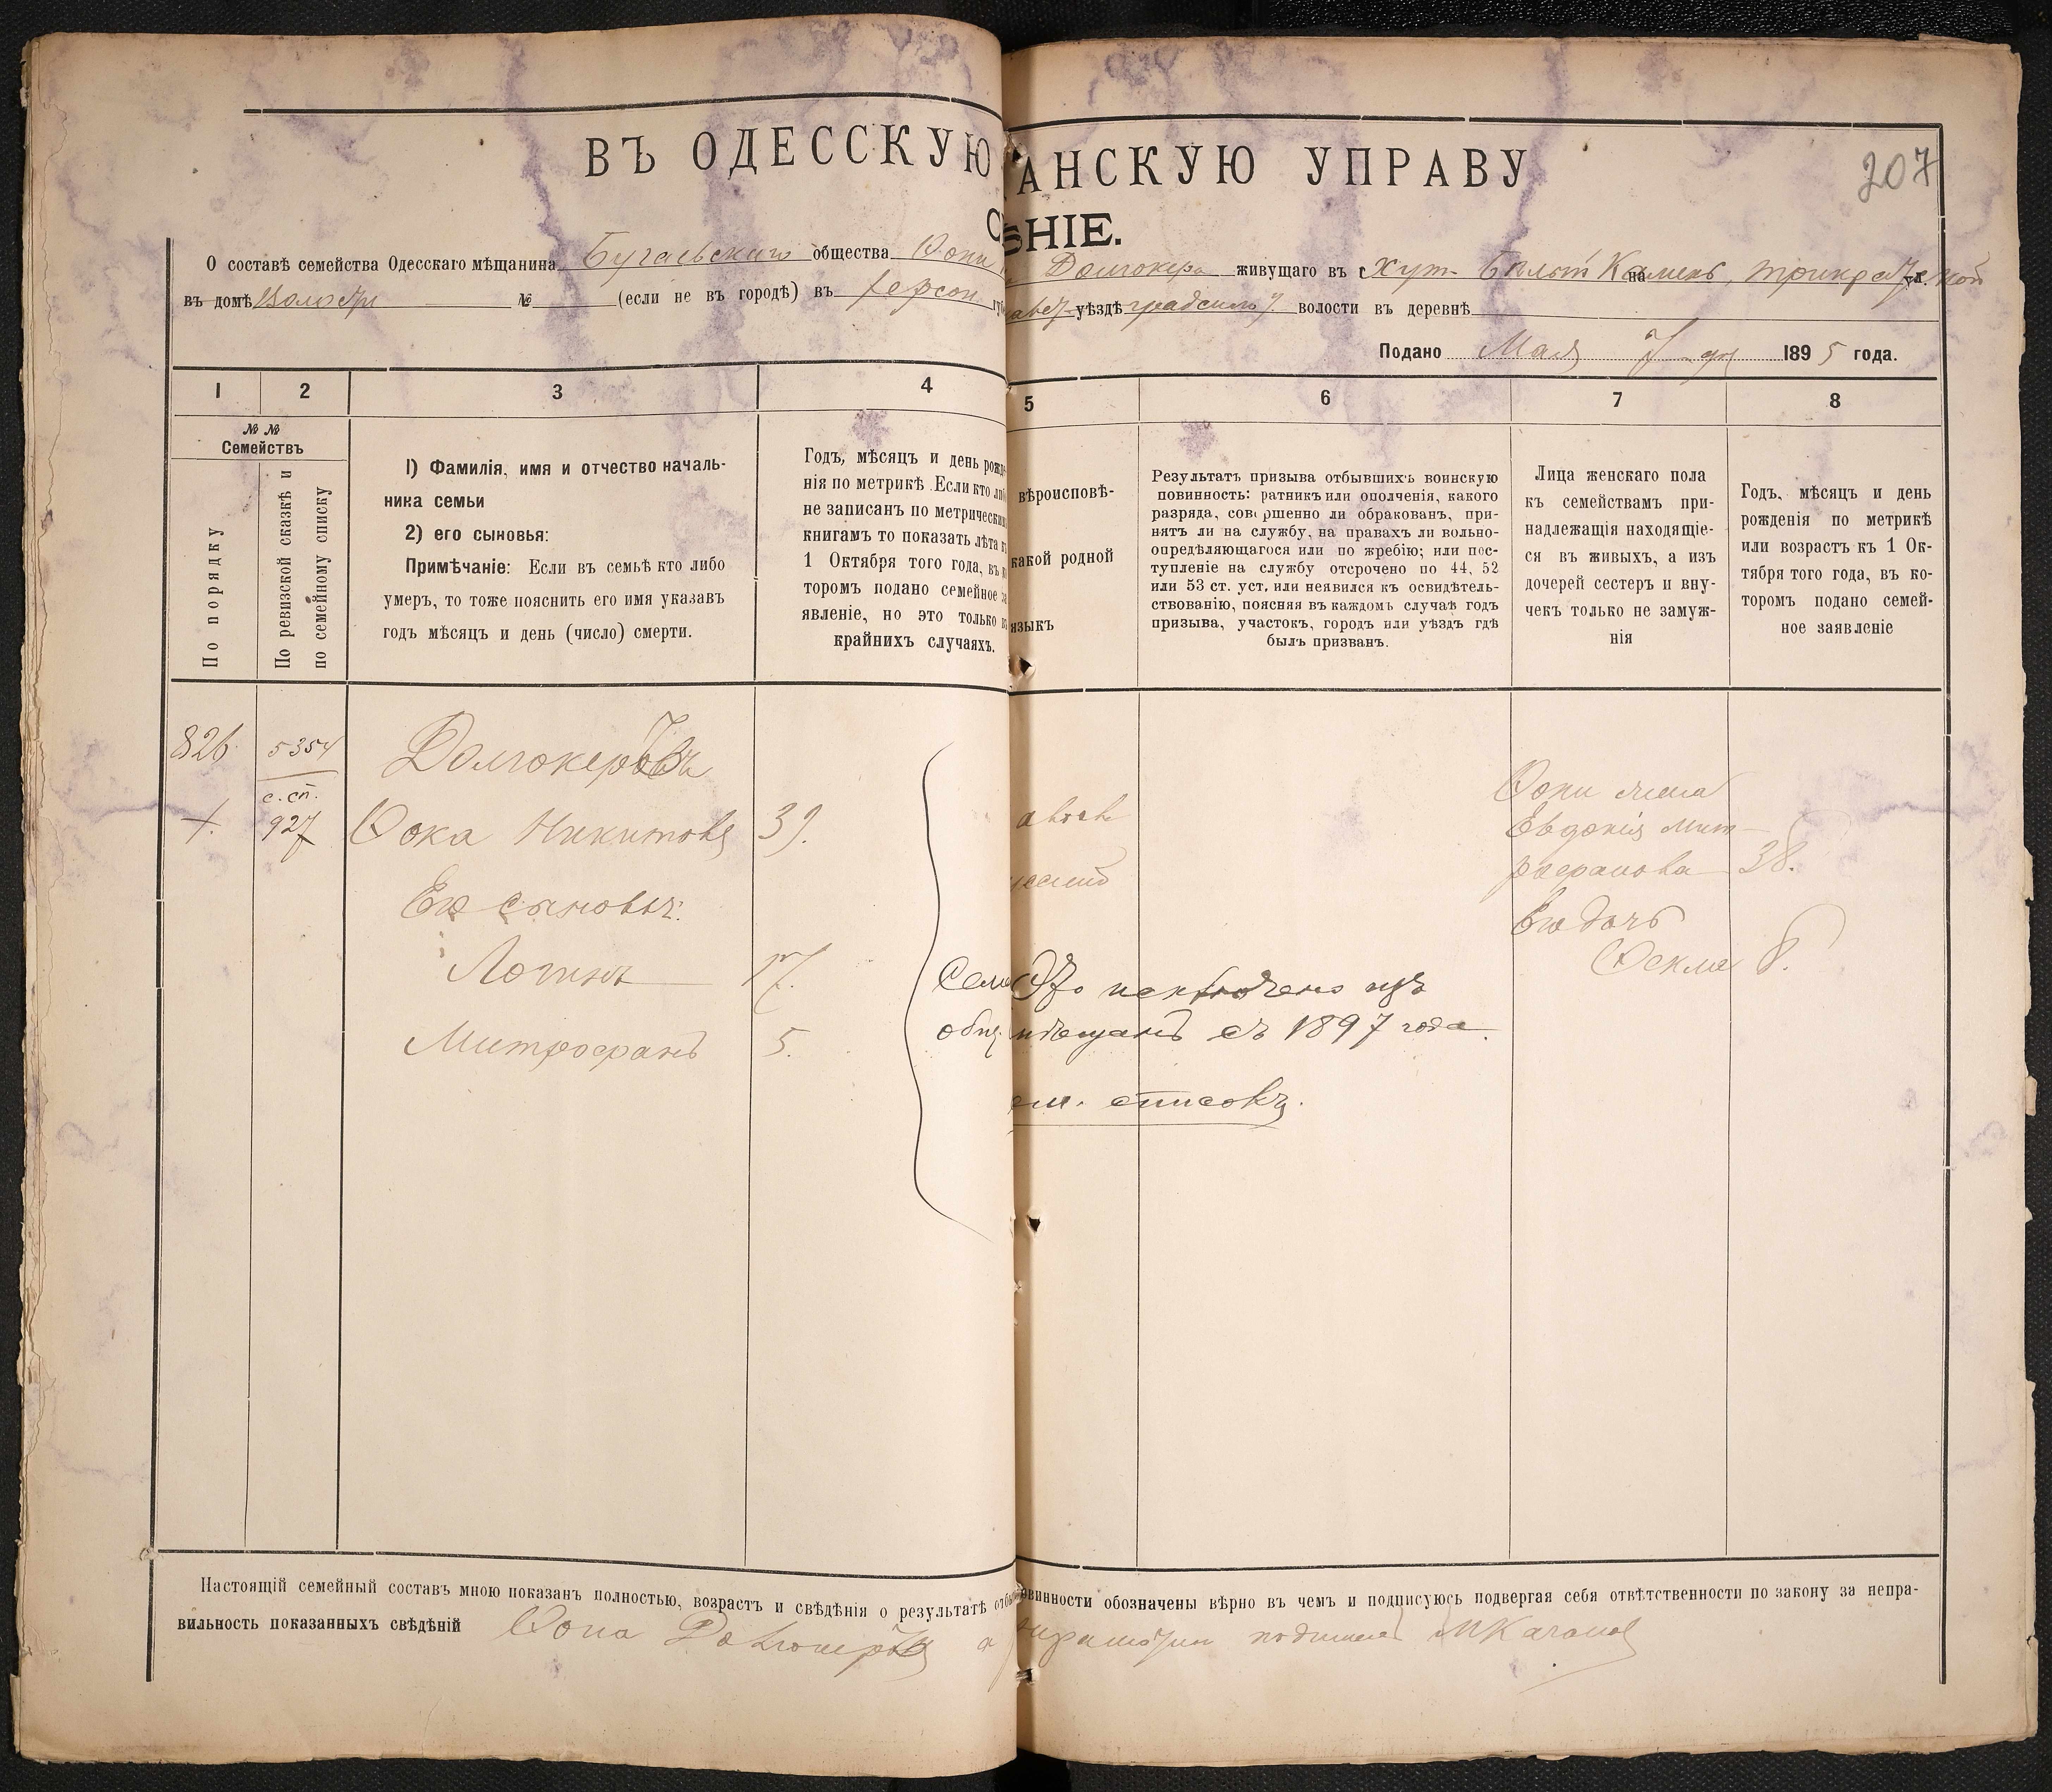 207
ВЪ ОДЕССКУЮ АНСКУЮ УПРАВУ
ѢНІЕ.
О составѣ семейства Одесскаго мѣщанина Бугаевскаго общества Ѳоки Долгокера живущаго въ с Хут. Бѣлый Камень, на ул.
въ домѣ волости № (если не въ городѣ) въ Херсон. уѣздѣ волости въ деревнѣ
Подано Мая 7 дня 1895 года.
1 2 3 4 5 6 7 8
№ №
Семействъ
По порядку
По ревизской сказкѣ и
по семейному списку
1) Фамилія, имя и отчество началь-
ника семьи
2) его сыновья:
Примѣчаніе: Если въ семьѣ кто либо
умеръ, то тоже пояснить его имя указавъ
годъ мѣсяцъ и день (число) смерти.
Годъ, мѣсяцъ и день рожде
нія по метрикѣ. Если кто либ
не записанъ по метрическим
книгамъ то показать лѣта к
1 Октября того года, въ ко
торомъ подано семейное за
явленіе, но это только въ
крайнихъ случаяхъ.
вѣроисповѣ-
какой родной
языкъ
Результатъ призыва отбывшихъ воинскую
повинность: ратникъ или ополченія, какого
разряда, совершенно ли обракованъ, при-
нятъ ли на службу, на правахъ ли вольно-
опредѣляющагося или по жребію; или пос-
тупленіе на службу отсрочено по 44, 52
или 53 ст. уст. или неявился къ освидѣтель-
ствованію, поясняя въ каждомъ случаѣ годъ
призыва, участокъ, городъ или уѣздъ гдѣ
былъ призванъ.
Лица женскаго пола
къ семействамъ при-
надлежащія находящіе-
ся въ живыхъ, а изъ
дочерей сестеръ и вну-
чекъ только не замуж-
нія
Годъ, мѣсяцъ и день
рожденія по метрикѣ
или возрастъ къ 1 Ок-
тября того года, въ ко-
торомъ подано семей-
ное заявленіе
826 5354 Долгокеровъ
с. сп.
927 Ѳока Никитовъ 39.
Его сыновья:
Логинъ 17.
Митрофанъ 5.
Ѳоки жена
Евдокія Мит-
рофанова 38.
Его дочь
Ѳекла 8.
Сем исключено изъ
общ мѣщанъ съ 1897 года.
см. списокъ.
Настоящій семейный составъ мною показанъ полностью, возрастъ и свѣдѣнія о результатѣ отбы овинности обозначены вѣрно въ чемъ и подписуюсь подвергая себя отвѣтственности по закону за непра-
вильность показанныхъ свѣдѣній Ѳока а